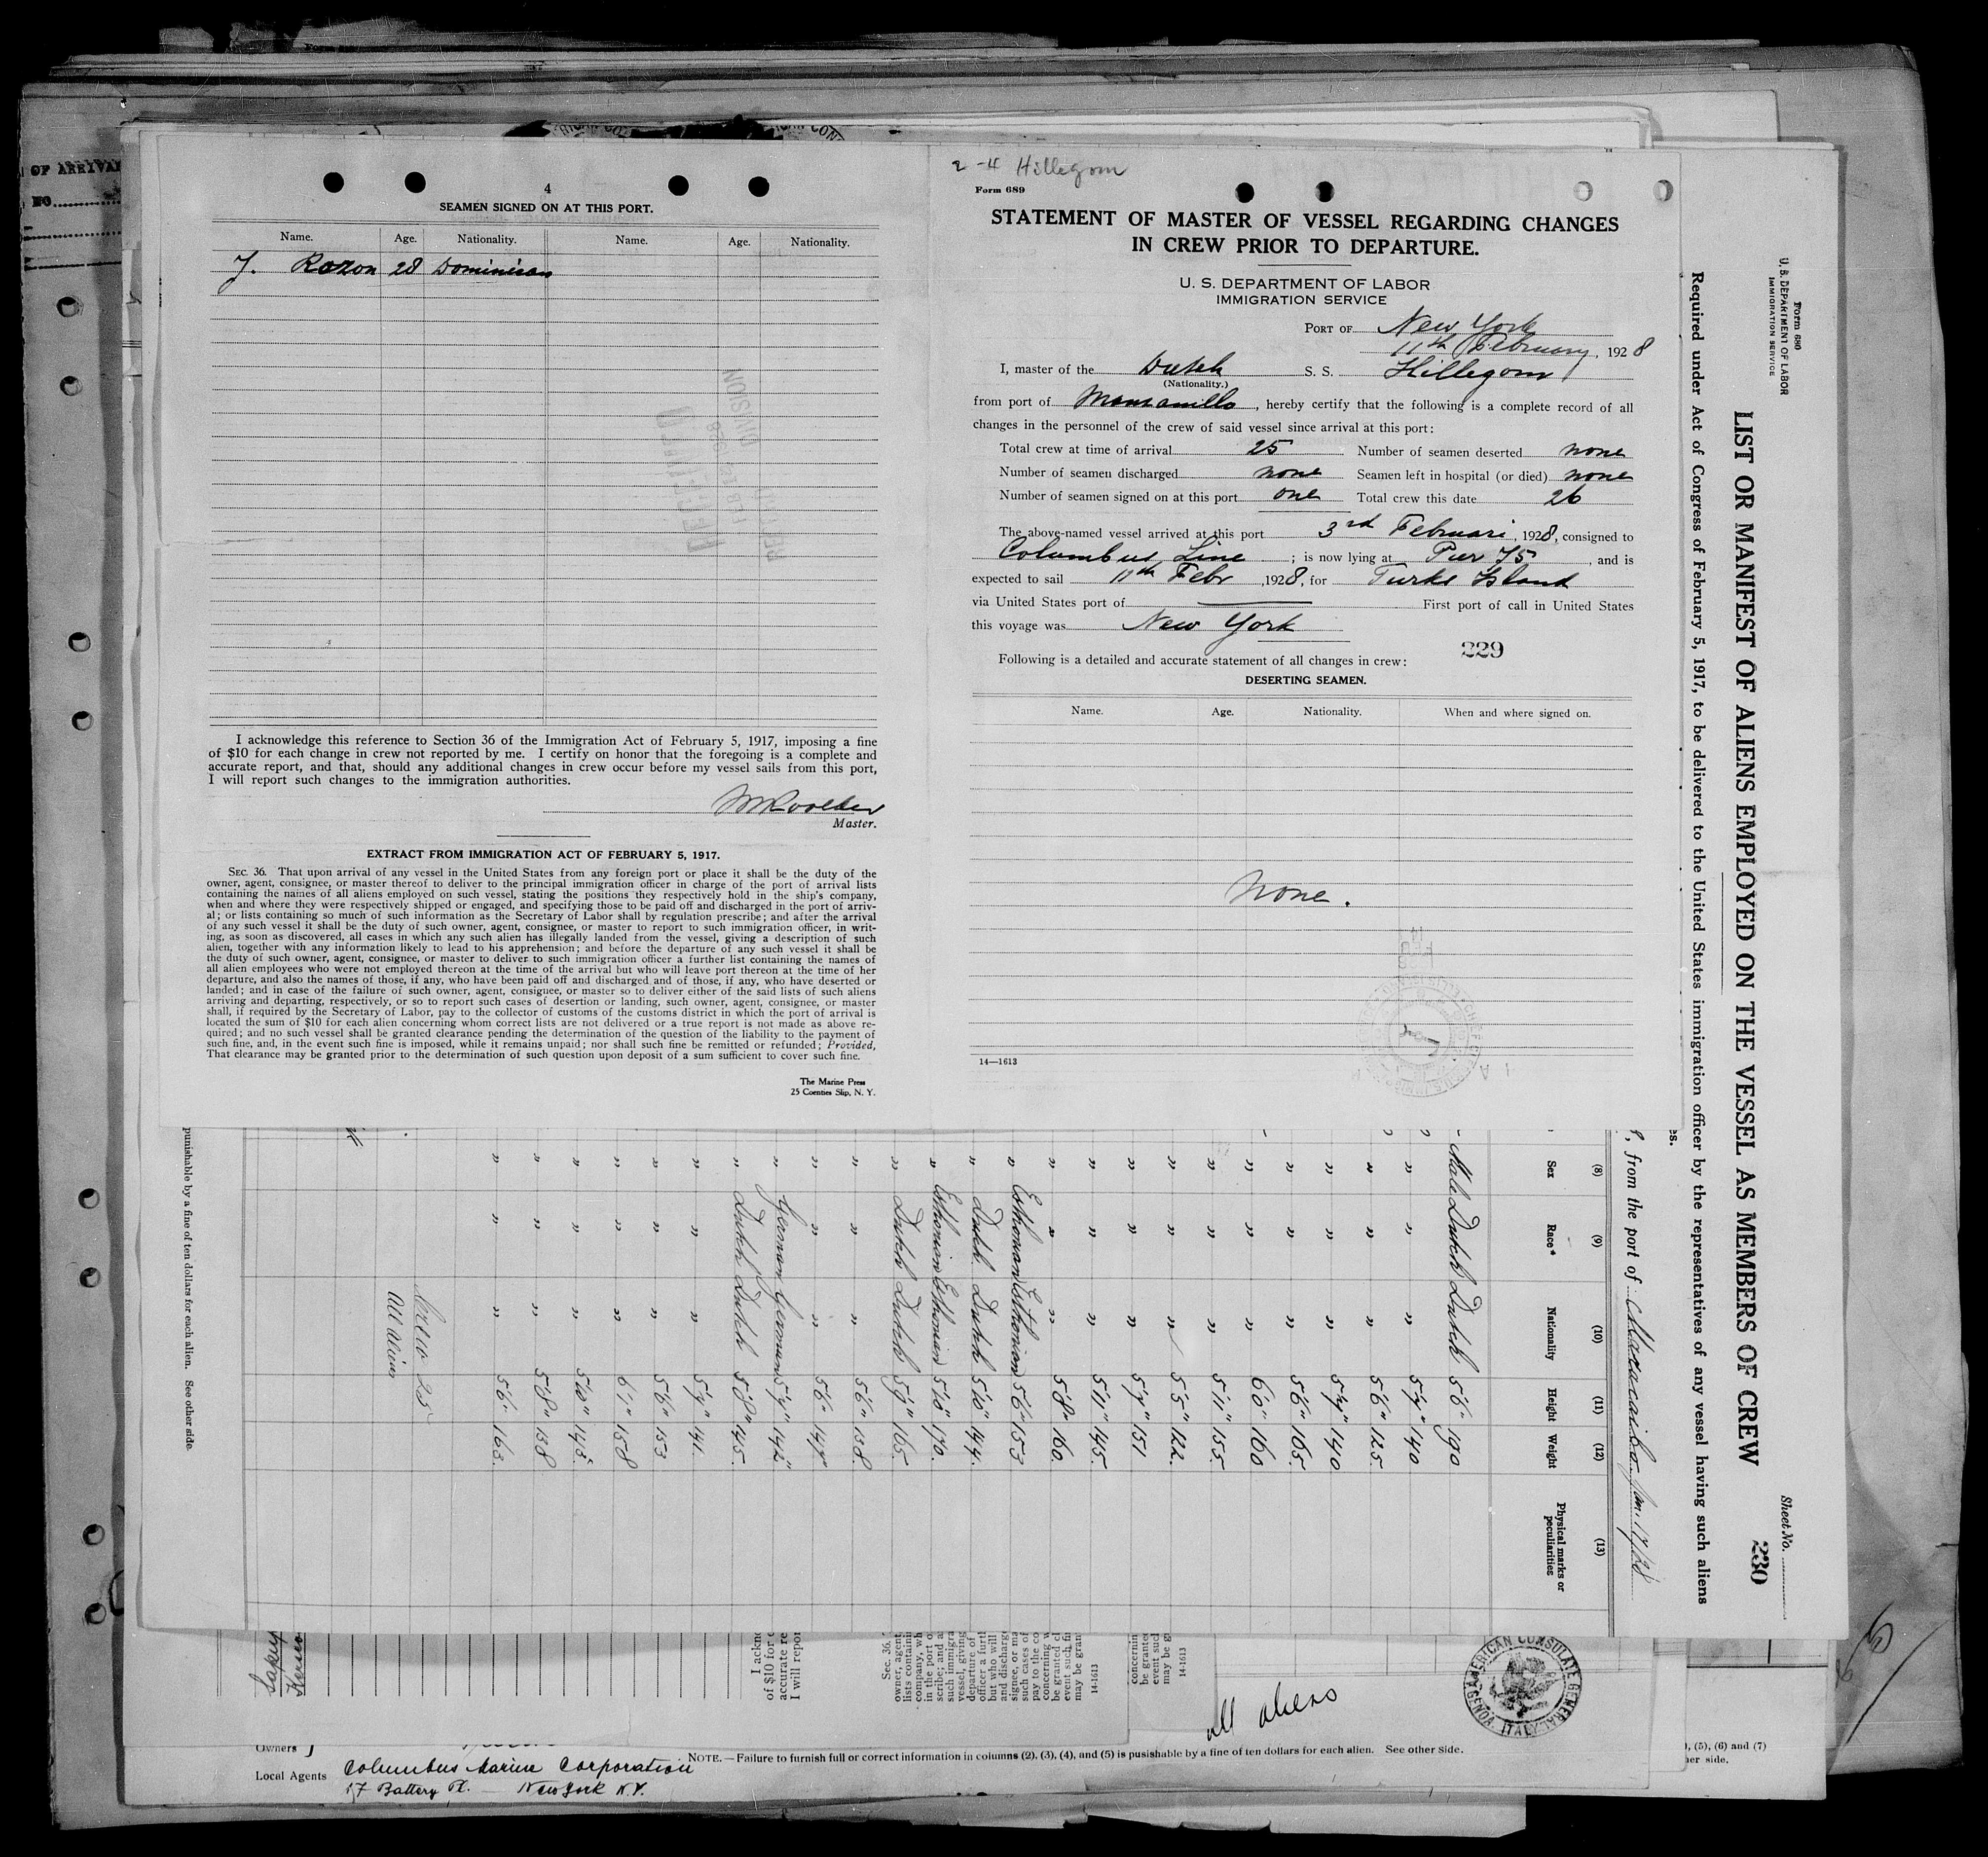 4
SEAMEN SIGNED ON AT THIS PORT.
Name. Age. Nationality. Name. Age. Nationality.
J. Rozon 28 Dominican
I acknowledge this reference to Section 36 of the Immigration Act of February 5, 1917, imposing a fine
of $10 for each change in crew not reported by me. I certify on honor that the foregoing is a complete and
accurate report, and that, should any additional changes in crew occur before my vessel sails from this port,
I will report such changes to the immigration authorities.
Master.
EXTRACT FROM IMMIGRATION ACT OF FEBRUARY 5, 1917.
SEC. 36. That upon arrival of any vessel in the United States from any foreign port or place it shall be the duty of the
owner, agent, consignee, or master thereof to deliver to the principal immigration officer in charge of the port of arrival lists
containing the names of all aliens employed on such vessel, stating the positions they respectively hold in the ship's company,
when and where they were respectively shipped or engaged, and specifying those to be paid off and discharged in the port of arriv-
al; or lists containing so much of such information as the Secretary of Labor shall by regulation prescribe; and after the arrival
of any such vessel it shall be the duty of such owner, agent, consignee, or master to report to such immigration officer, in writ-
ing, as soon as discovered, all cases in which any such alien has illegally landed from the vessel, giving a description of such
alien, together with any information likely to lead to his apprehension; and before the departure of any such vessel it shall be
the duty of such owner, agent, consignee, or master to deliver to such immigration officer a further list containing the names of
all alien employees who were not employed thereon at the time of the arrival but who will leave port thereon at the time of her
departure, and also the names of those, if any, who have been paid off and discharged and of those, if any, who have deserted or
landed; and in case of the failure of such owner, agent, consignee, or master so to deliver either of the said lists of such aliens
arriving and departing, respectively, or so to report such cases of desertion or landing, such owner, agent, consignee, or master
shall, if required by the Secretary of Labor, pay to the collector of customs of the customs district in which the port of arrival is
located the sum of $10 for each alien concerning whom correct lists are not delivered or a true report is not made as above re-
quired; and no such vessel shall be granted clearance pending the determination of the question of the liability to the payment of
such fine, and, in the event such fine is imposed, while it remains unpaid; nor shall such fine be remitted or refunded; Provided,
That clearance may be granted prior to the determination of such question upon deposit of a sum sufficient to cover such fine.
The Marine Press
25 Coenties Slip, N. Y.
2-4 Hillegom
Form 689
STATEMENT OF MASTER OF VESSEL REGARDING CHANGES
IN CREW PRIOR TO DEPARTURE.
U. S. DEPARTMENT OF LABOR
IMMIGRATION SERVICE
PORT OF New York
11th February, 1928
I, master of the Dutch S. S. Hillegom
(Nationality.)
from port of Manzanillo, hereby certify that the following is a complete record of all
changes in the personnel of the crew of said vessel since arrival at this port:
Total crew at time of arrival 25 Number of seamen deserted none
Number of seamen discharged none Seamen left in hospital (or died) none
Number of seamen signed on at this port one Total crew this date 26
The above-named vessel arrived at this port 3rd Februari, 1928, consigned to
Columbus Line; is now lying at Pier 75, and is
expected to sail 11th Febr, 1928, for Turks Island
via United States port of First port of call in United States
this voyage was New York
229
Following is a detailed and accurate statement of all changes in crew:
DESERTING SEAMEN.
Name. Age. Nationality. When and where signed on.
None.
14—1613
Form 680
U. S. DEPARTMENT OF LABOR
IMMIGRATION SERVICE
Sheet No.
230
LIST OR MANIFEST OF ALIENS EMPLOYED ON THE VESSEL AS MEMBERS OF CREW
Required under Act of Congress of February 5, 1917, to be delivered to the United States immigration officer by the representatives of any vessel having such aliens
, from the port of Maracaibo Jan. 17/28
(8) (9) (10) (11) (12) (13)
Sex Race* Nationality Height Weight Physical marks or peculiarities
Male Dutch Dutch 5'6" 190
" " " 5'7" 140
" " " 5'6" 125
" " " 5'7" 140
" " " 5'6" 165
" " " 6'0" 160
" " " 5'11" 155
" " " 5'5" 122
" " " 5'7" 151
" " " 5'11" 145
" " " 5'8" 160
" Esthonian Esthonian 5'6" 153
" Dutch Dutch 5'10" 144
" Esthonian Esthonian 5'10" 170
" Dutch Dutch 5'9" 165
" " " 5'6" 138
" " " 5'6" 147
" German German 5'7" 142
" Dutch Dutch 5'8" 145
" " " 5'7" 141
" " " 5'6" 153
" " " 6'1" 158
" " " 5'10" 143
" " " 5'8" 138
" " " 5'6" 163
Crew 25
All alien
punishable by a fine of ten dollars for each alien. See other side.
OF ARRIVAL
NO.
all aliens
AMERICAN CONSULATE GENERAL
GENOA, ITALY
Owners
NOTE.—Failure to furnish full or correct information in columns (2), (3), (4), and (5) is punishable by a fine of ten dollars for each alien. See other side.
Local Agents Columbus Marine Corporation
17 Battery Pl. — New York N.Y.
(5), (6) and (7)
her side.